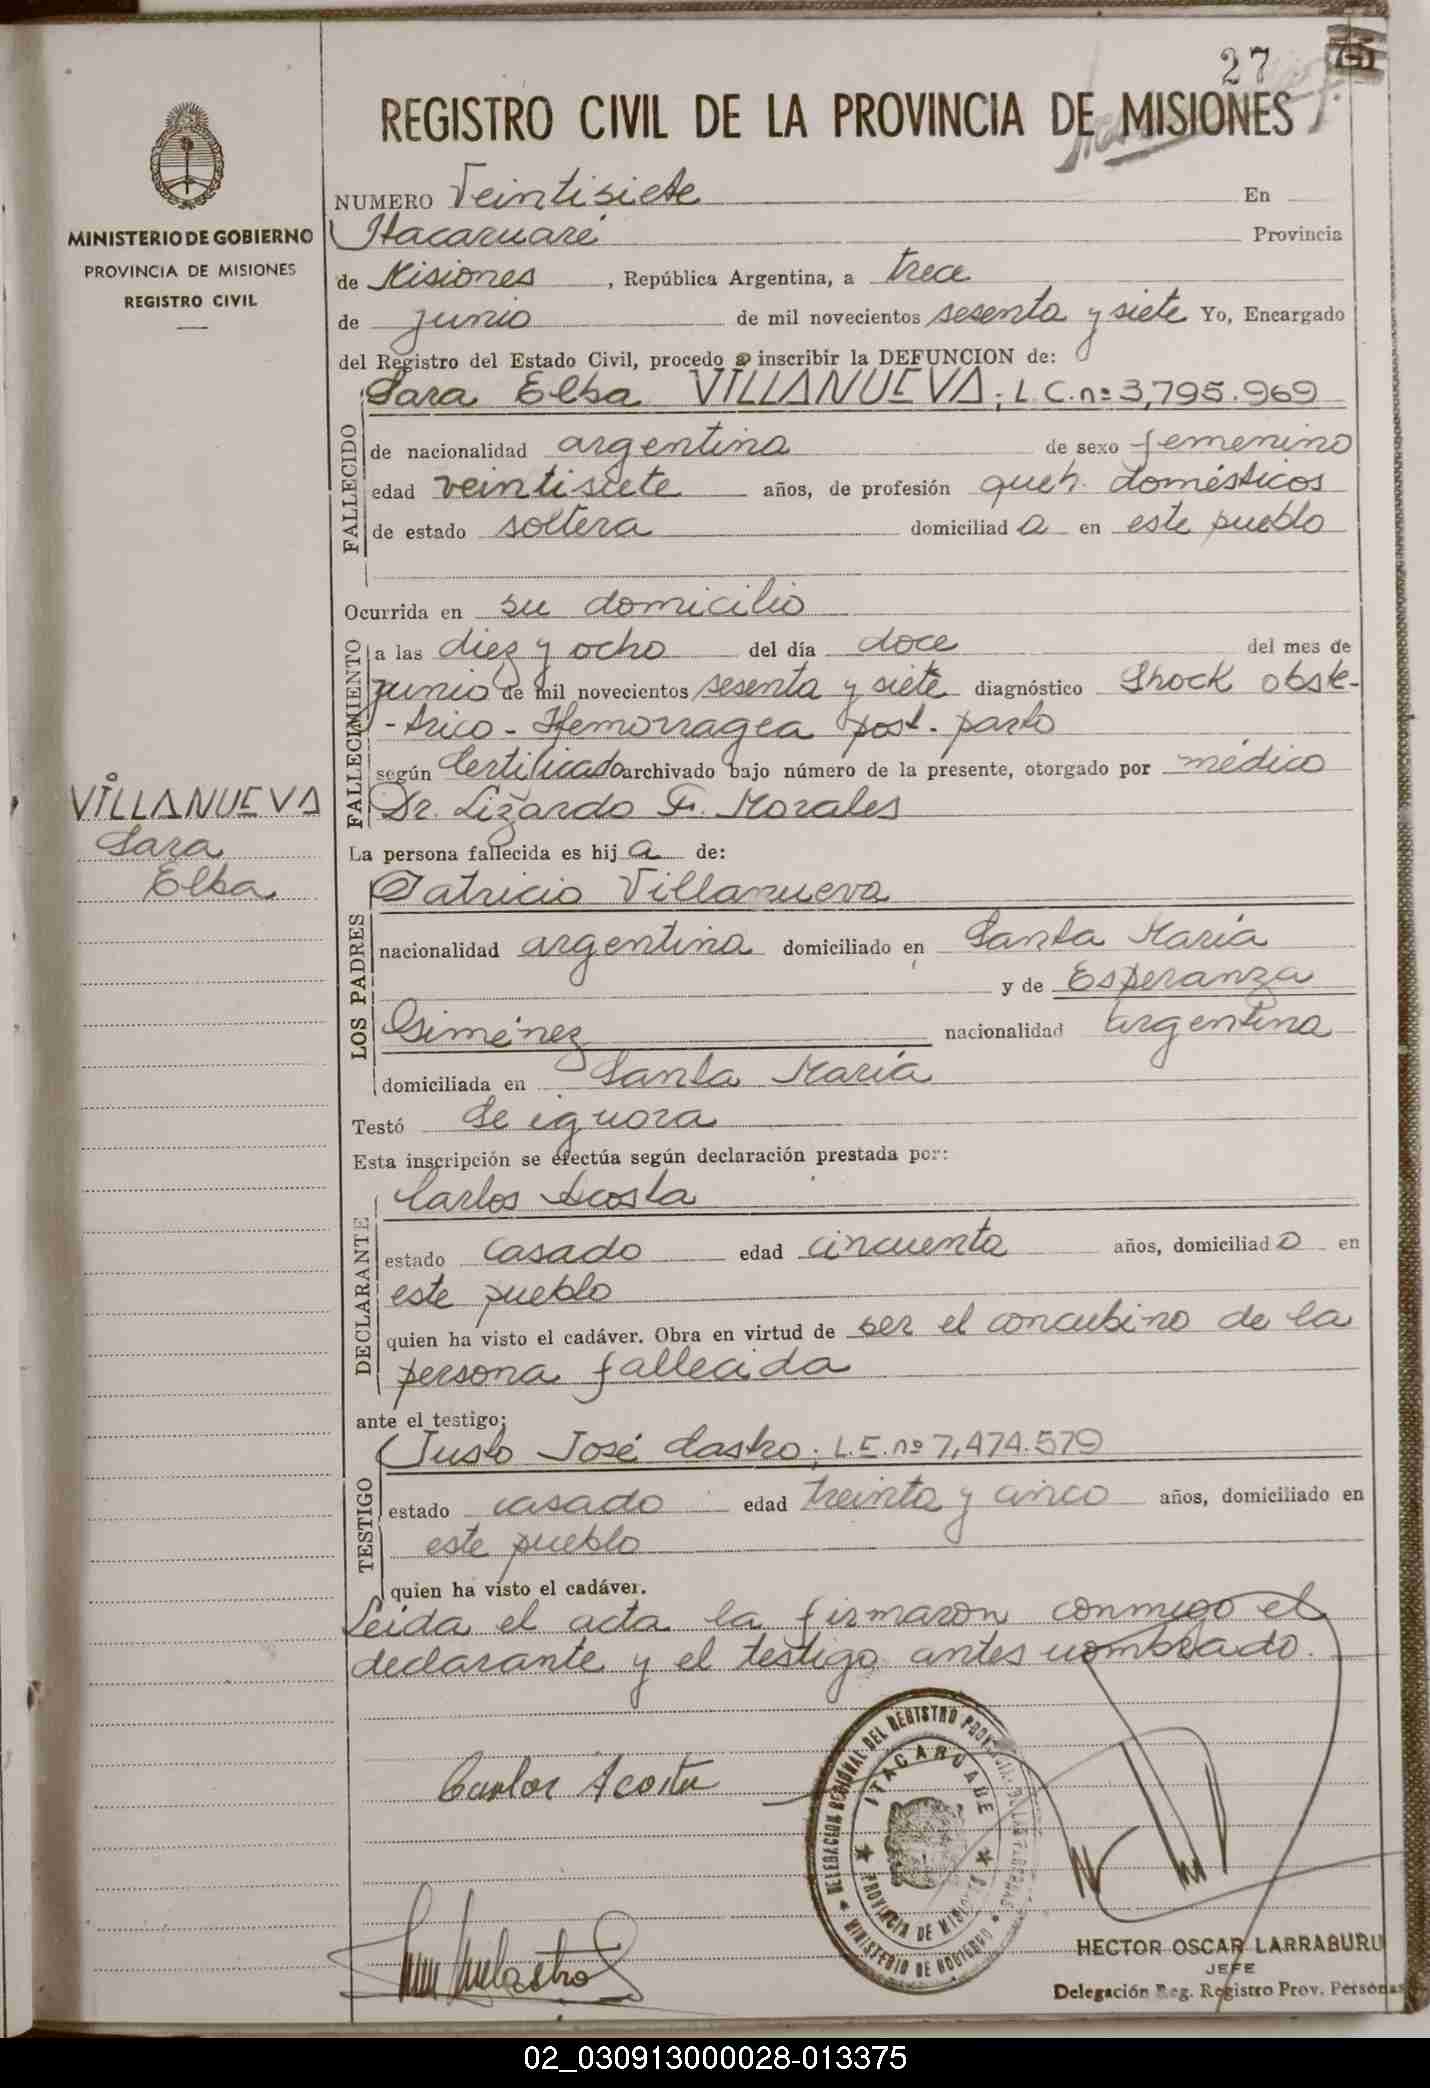 27
REGISTRO CIVIL DE LA PROVINCIA DE MISIONES
MINISTERIO DE GOBIERNO
PROVINCIA DE MISIONES
REGISTRO CIVIL
NUMERO Veintisiete En
Itacaruaré Provincia
de Misiones, República Argentina, a trece
de junio de mil novecientos sesenta y siete Yo, Encargado
del Registro del Estado Civil, procedo a inscribir la DEFUNCION de:
FALLECIDO
Sara Elba VILLANUEVA; L.C. nº 3,795.969
de nacionalidad argentina de sexo femenino
edad veintisiete años, de profesión queh. domésticos
de estado soltera domiciliad a en este pueblo
Ocurrida en su domicilio
FALLECIMIENTO
a las diez y ocho del día doce del mes de
junio de mil novecientos sesenta y siete diagnóstico Shock obste-
-trico - Hemorragea post. parto
según Certificado archivado bajo número de la presente, otorgado por médico
Dr. Lizardo F. Morales
VILLANUEVA
Sara
Elba
La persona fallecida es hij a de:
LOS PADRES
Patricio Villanueva
nacionalidad argentina domiciliado en Santa María
y de Esperanza
Giménez nacionalidad argentina
domiciliada en Santa María
Testó Se ignora
Esta inscripción se efectúa según declaración prestada por:
DECLARANTE
Carlos Acosta
estado casado edad cincuenta años, domiciliad o en
este pueblo
quien ha visto el cadáver. Obra en virtud de ser el concubino de la
persona fallecida
ante el testigo:
TESTIGO
Justo José Castro; L.E. nº 7,474.579
estado casado edad treinta y cinco años, domiciliado en
este pueblo
quien ha visto el cadáver.
Leida el acta la firmaron conmigo el
declarante y el testigo antes nombrado.
Carlos Acosta
DELEGACION REGIONAL DEL REGISTRO PROVINCIAL DE LAS PERSONAS
ITACARUARE
PROVINCIA DE MISIONES
MINISTERIO DE GOBIERNO
HECTOR OSCAR LARRABURU
JEFE
Delegación Reg. Registro Prov. Personas
02_030913000028-013375